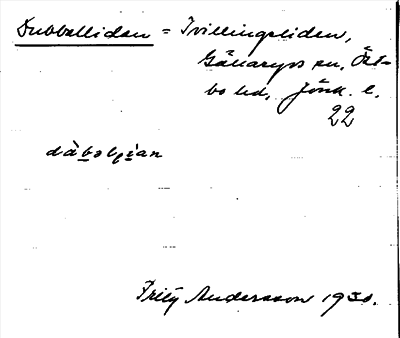 Dubbellidan = Tvillingsliden,
Gällaryds sn, Öst-
bo hd, Jönk. l.
22
Fritz Andersson 1930.